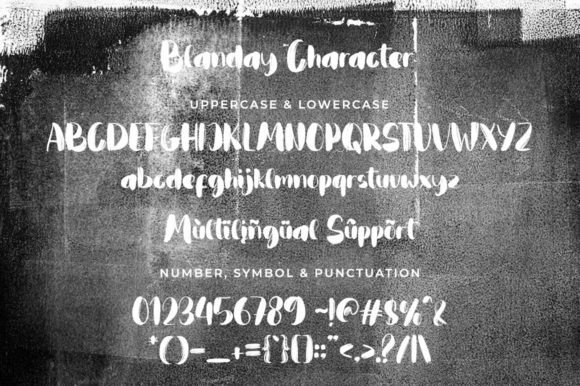 Blanday Character
UPPERCASE & LOWERCASE
ABCDEFGHIJKLMNOPQRSTUVWXYZ
abcdefghijklmnopqrstuvwxyz
Mùltilįñgüal Sûppõrt
NUMBER, SYMBOL & PUNCTUATION
0123456789 ~!@#$%^&
*()-_+={}[]:;"<,>.?/|\